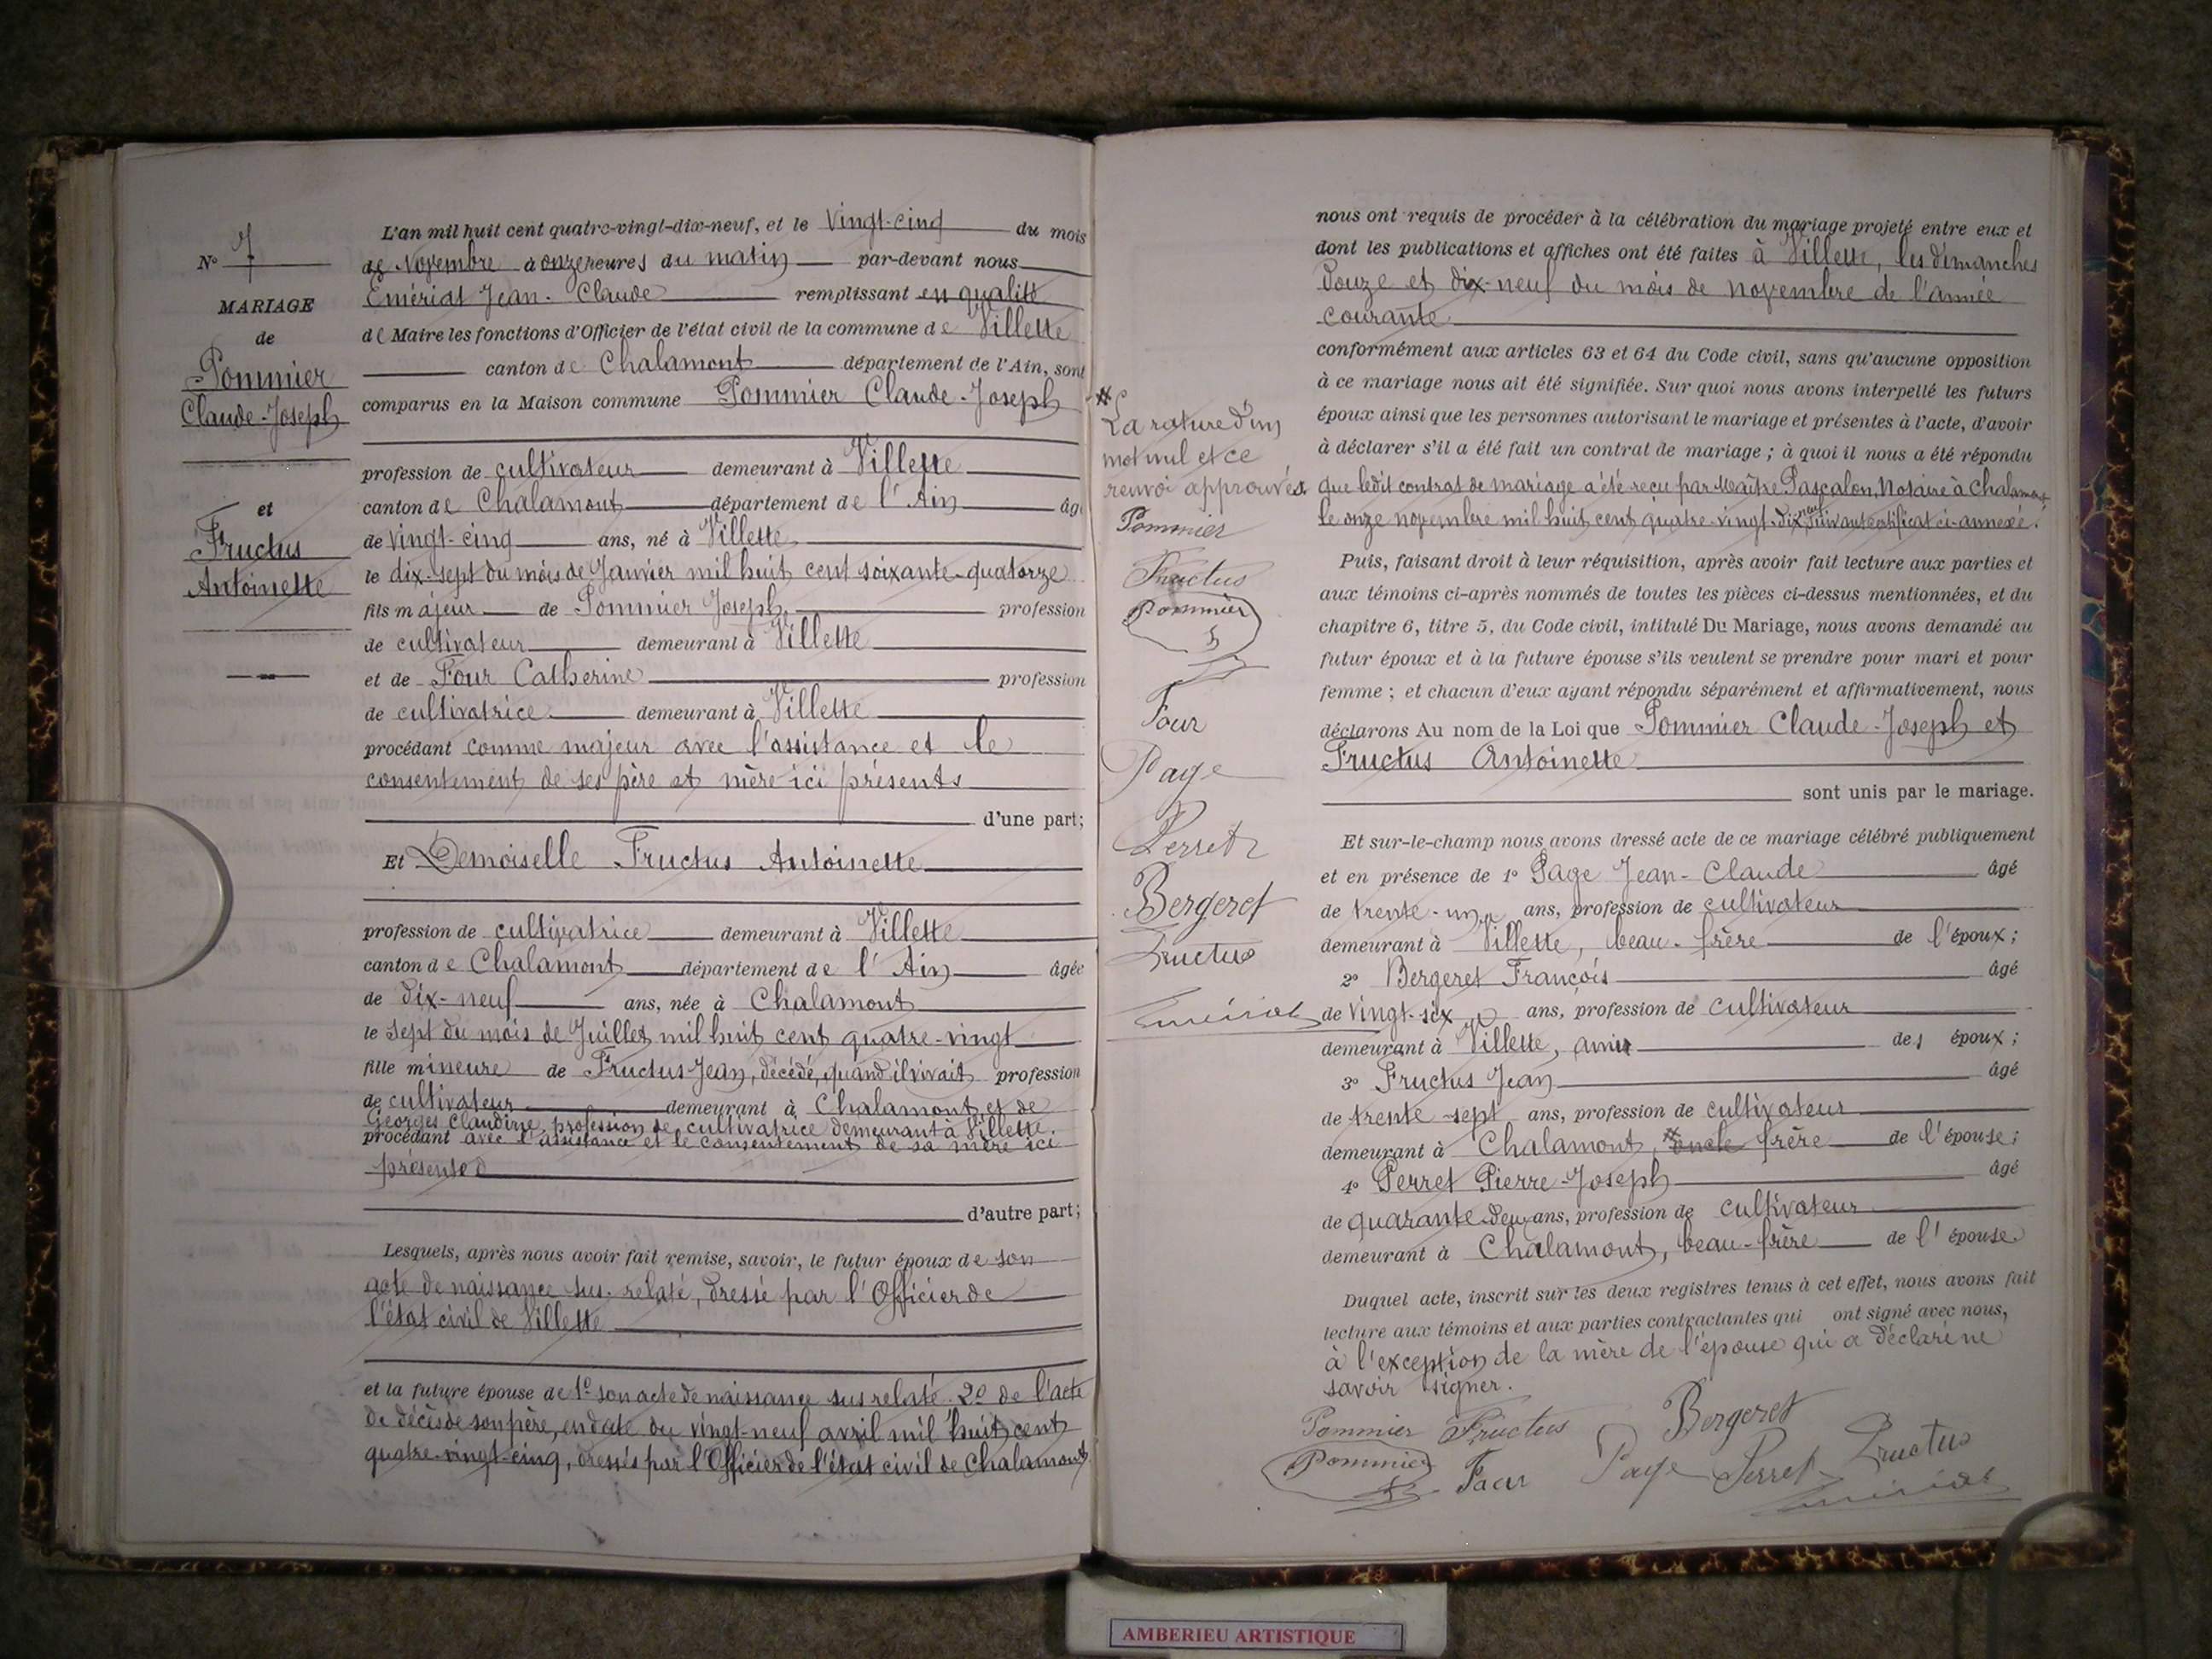 N° 7
MARIAGE
de
Pommier
Claude-Joseph
et
Fructus
Antoinette
L'an mil huit cent quatre-vingt-dix-neuf, et le Vingt-cinq du mois
de Novembre à onze heures du matin par-devant nous
Emériat Jean-Claude remplissant en qualité
de Maire les fonctions d'Officier de l'état civil de la commune de Villette
canton de Chalamont département de l'Ain, sont
comparus en la Maison commune Pommier Claude-Joseph
profession de cultivateur demeurant à Villette
canton de Chalamont département de l'Ain âg
de vingt-cinq ans, né à Villette
le dix-sept du mois de Janvier mil huit cent soixante-quatorze
fils majeur de Pommier Joseph profession
de cultivateur demeurant à Villette
et de Four Catherine profession
de cultivatrice demeurant à Villette
procédant comme majeur avec l'assistance et le
consentement de ses père et mère ici présents
d'une part;
Et Demoiselle Fructus Antoinette
profession de cultivatrice demeurant à Villette
canton de Chalamont département de l'Ain âgée
de dix-neuf ans, née à Chalamont
le sept du mois de Juillet mil huit cent quatre-vingt
fille mineure de Fructus Jean, décédé, quand il vivait profession
de cultivateur demeurant à Chalamont et de
Georges Claudine, profession de cultivatrice demeurant à Villette.
procédant avec l'assistance et le consentement de sa mère ici
présente
d'autre part;
Lesquels, après nous avoir fait remise, savoir, le futur époux de son
acte de naissance sus-relaté, dressé par l'Officier de
l'état civil de Villette
et la future épouse de 1° son acte de naissance sus relaté. 2° de l'acte
de décès de son père, en date du vingt-neuf avril mil huit cent
quatre-vingt-cinq, dressés par l'Officier de l'état civil de Chalamont
nous ont requis de procéder à la célébration du mariage projeté entre eux et
dont les publications et affiches ont été faites à Villette, les dimanches
douze et dix-neuf du mois de novembre de l'année
courante
conformément aux articles 63 et 64 du Code civil, sans qu'aucune opposition
à ce mariage nous ait été signifiée. Sur quoi nous avons interpellé les futurs
époux ainsi que les personnes autorisant le mariage et présentes à l'acte, d'avoir
à déclarer s'il a été fait un contrat de mariage ; à quoi il nous a été répondu
que ledit contrat de mariage a été reçu par Maître Pascalon, Notaire à Chalamont
le onze novembre mil huit cent quatre-vingt-dix neuf suivant certificat ci-annexé.
Puis, faisant droit à leur réquisition, après avoir fait lecture aux parties et
aux témoins ci-après nommés de toutes les pièces ci-dessus mentionnées, et du
chapitre 6, titre 5, du Code civil, intitulé Du Mariage, nous avons demandé au
futur époux et à la future épouse s'ils veulent se prendre pour mari et pour
femme ; et chacun d'eux ayant répondu séparément et affirmativement, nous
déclarons Au nom de la Loi que Pommier Claude-Joseph et
Fructus Antoinette
sont unis par le mariage.
Et sur-le-champ nous avons dressé acte de ce mariage célébré publiquement
et en présence de 1° Page Jean-Claude âgé
de trente-un ans, profession de cultivateur
demeurant à Villette, beau-frère de l'époux ;
2° Bergeret François âgé
de vingt-six ans, profession de cultivateur
demeurant à Villette, ami des époux ;
3° Fructus Jean âgé
de trente-sept ans, profession de cultivateur
demeurant à Chalamont, # oncle frère de l'épouse ;
4° Perret Pierre-Joseph âgé
de quarante-deux ans, profession de cultivateur
demeurant à Chalamont, beau-frère de l'épouse
Duquel acte, inscrit sur les deux registres tenus à cet effet, nous avons fait
lecture aux témoins et aux parties contractantes qui ont signé avec nous,
à l'exception de la mère de l'épouse qui a déclaré ne
savoir signer.
Pommier Fructus Bergeret
Pommier Four Page Perret Fructus
Emériat
#
La rature d'un
mot nul et ce
renvoi approuvés
Pommier
Fructus
Pommier
Four
Page
Perret
Bergeret
Fructus
Emériat
AMBERIEU ARTISTIQUE